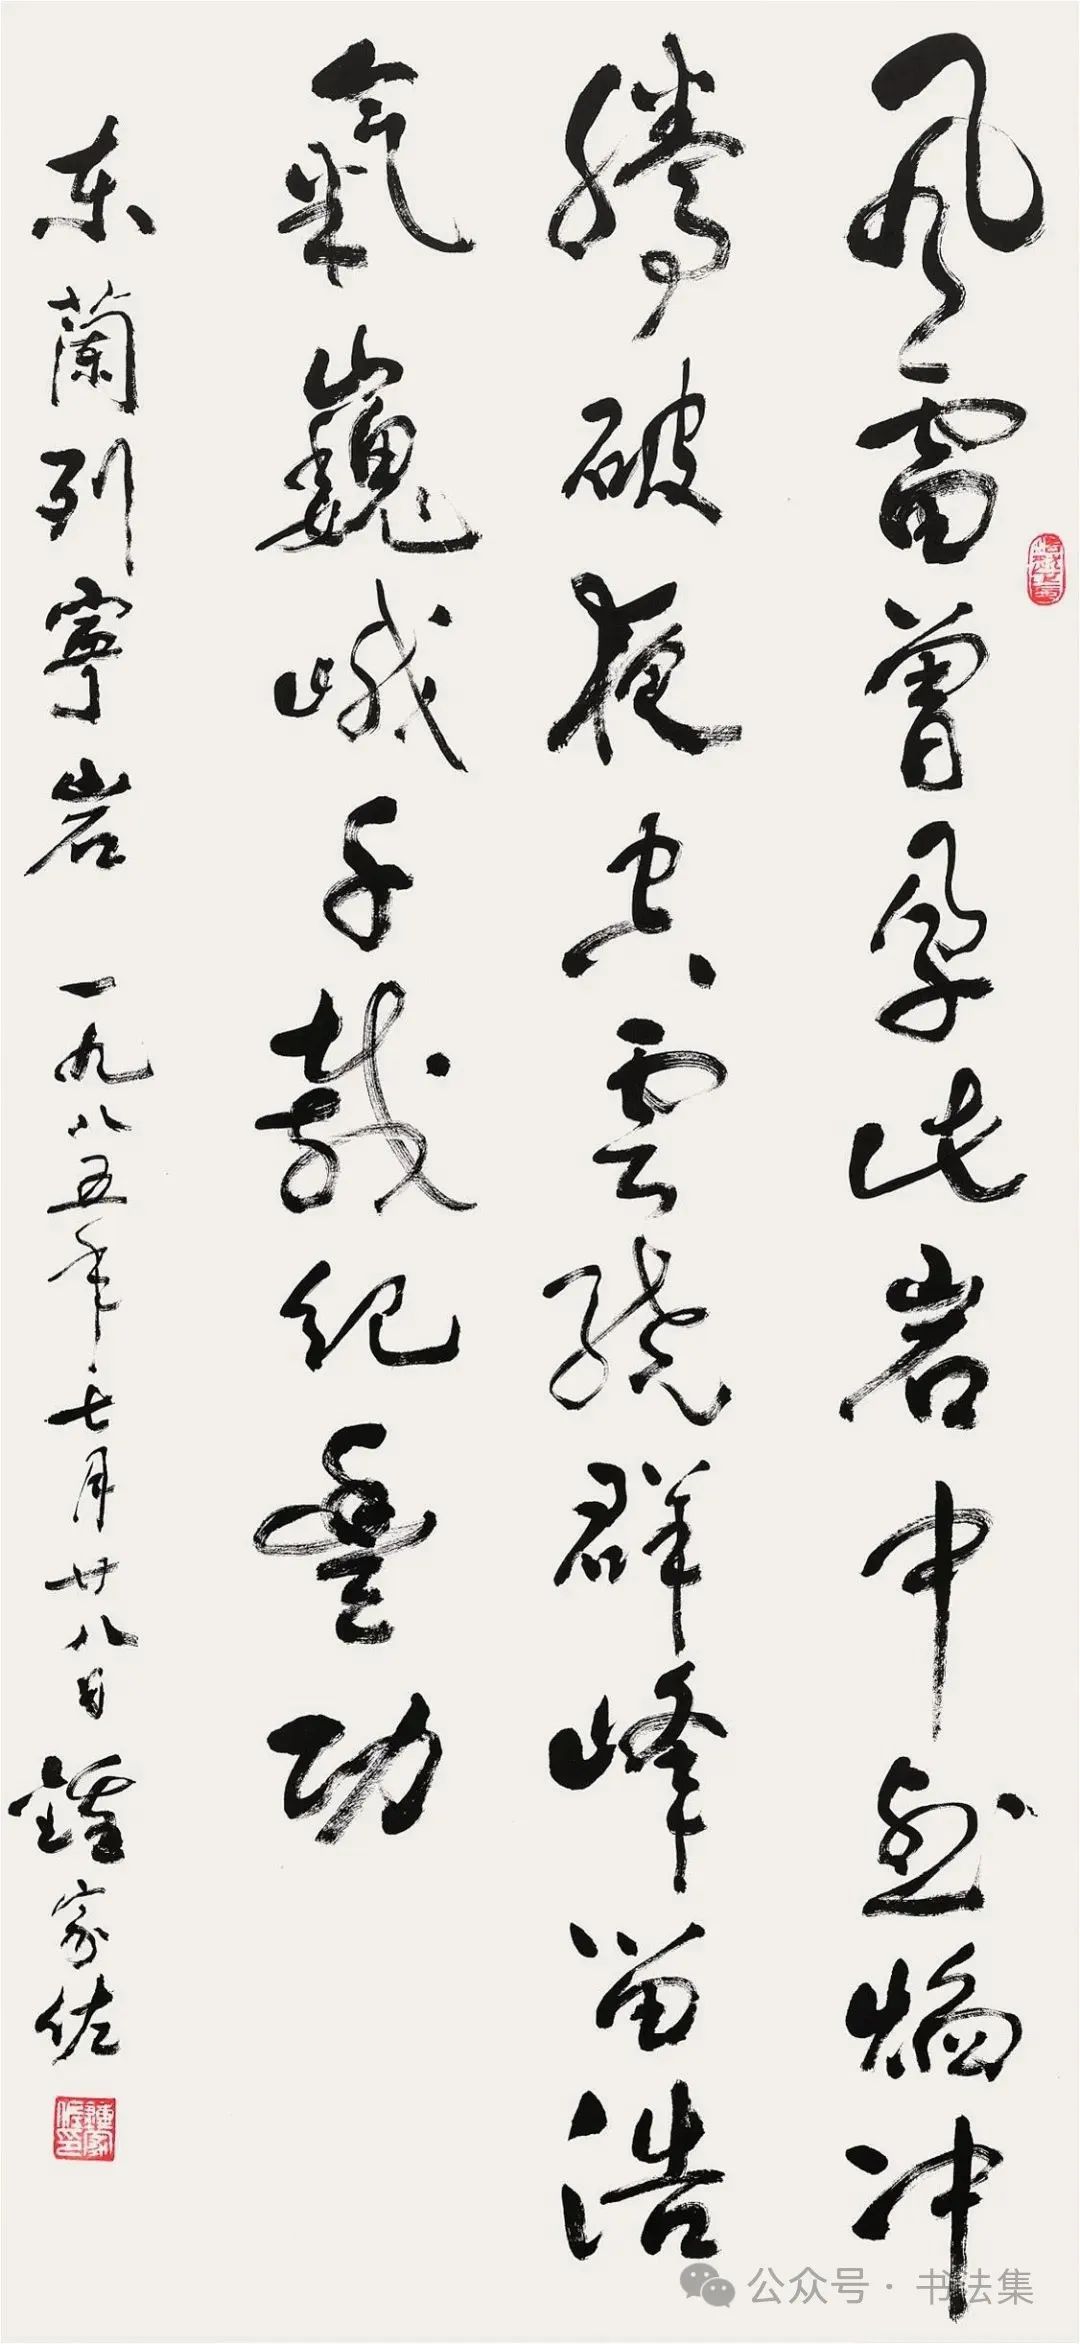 风雷曾孕此岩中烈焰冲
騰破夜空雲繞群峰留浩
氣巍峨千載紀豐功
东蘭列寧岩 一九八五年七月廿八日鍾家佐
鍾家佐印
公众号·书法集